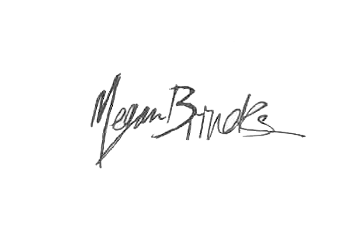 Megan Brinoks